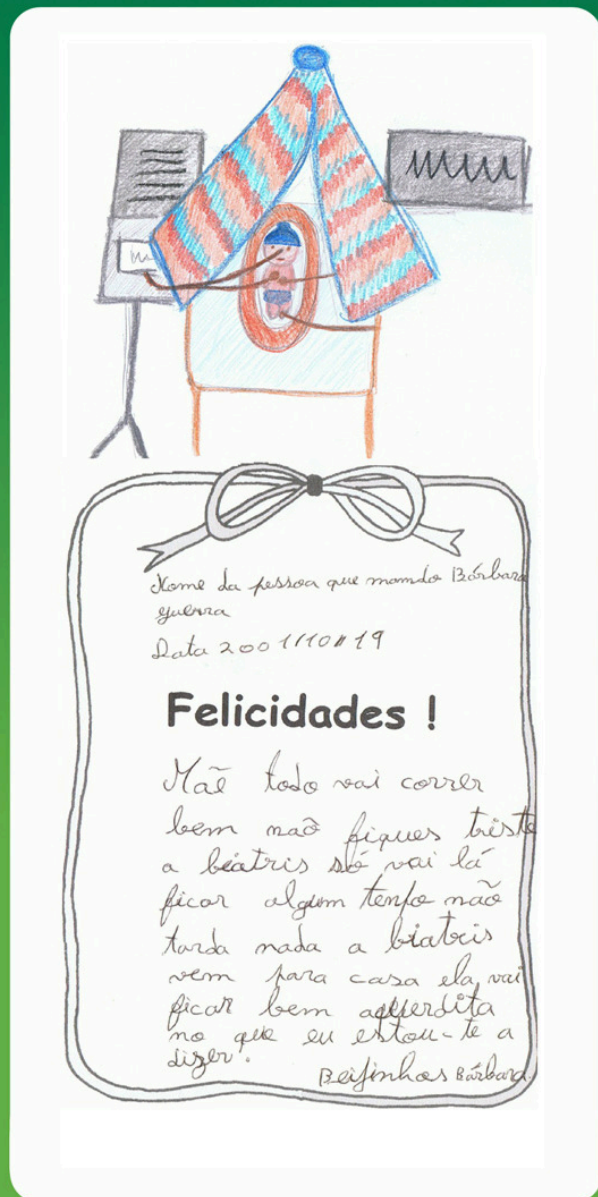 Nome da pessoa que mando Bárbara
guerra
Data 2001/10/19
Felicidades !
Mãe todo vai correr
bem naõ fiques triste
a béatris só vai lá
ficar algum tenpo naõ
tarda nada a biatris
vem para casa ela vai
ficar bem
no que eu estou-te a
dizer.
Beijinhos Bárbara